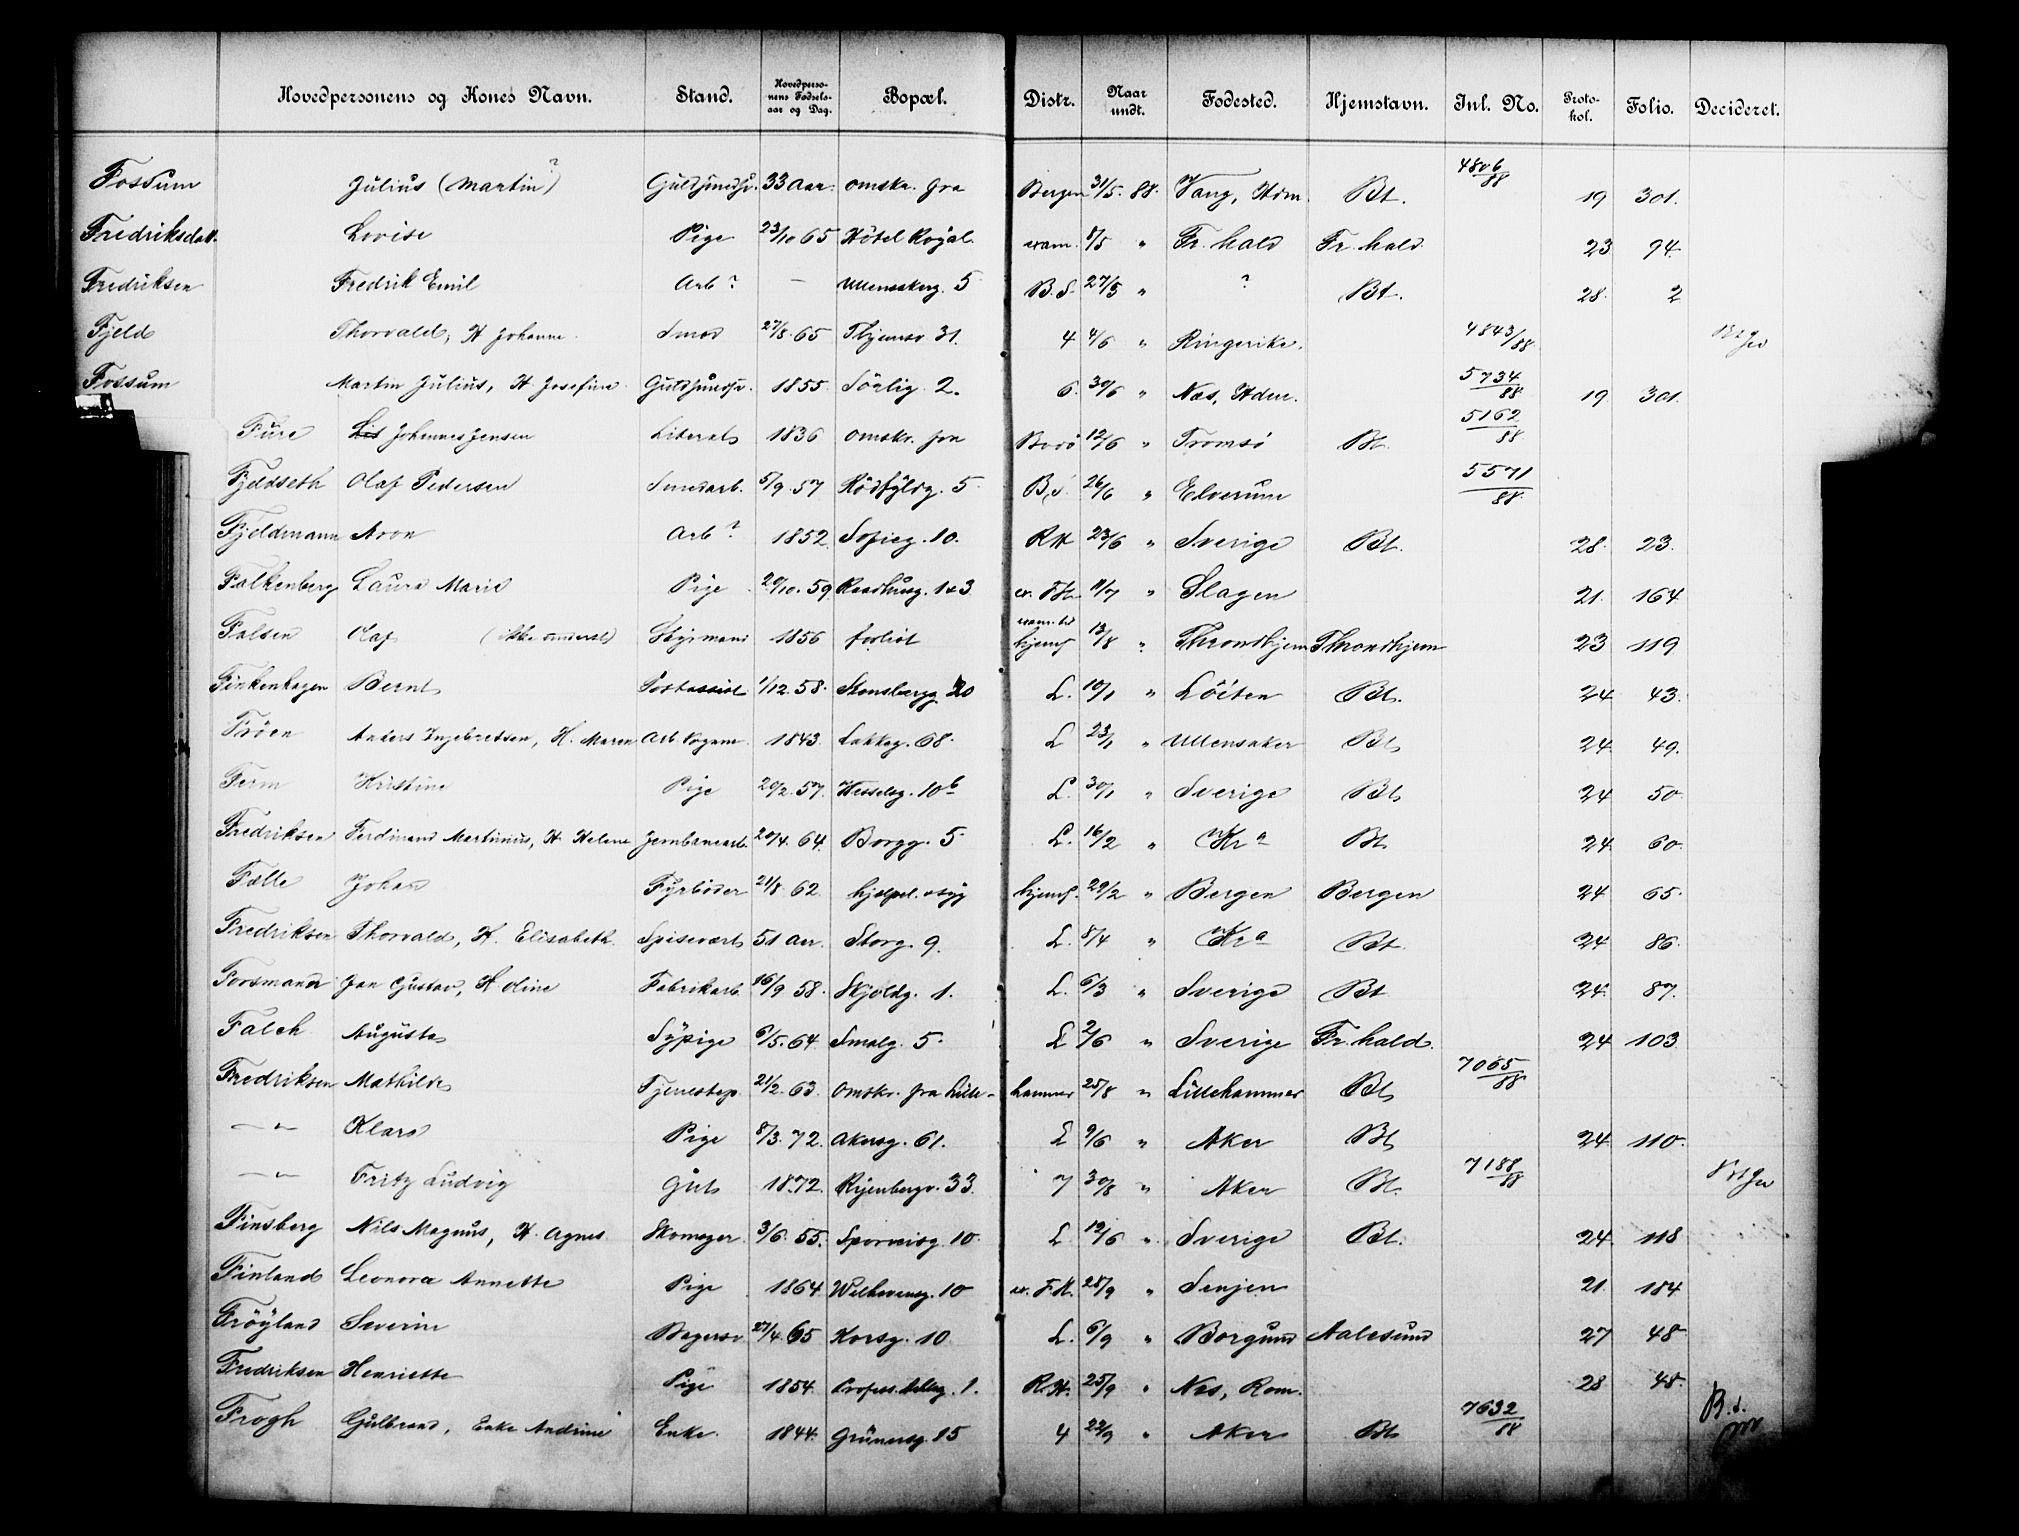 Hovedpersonens og Kones Navn. Stand. Hovedperso-nens Fødsels-aar og Dag. Bopæl. Distr. Naar undt. Fødested. Hjemstavn. Inl. No. Proto-kol. Folio. Decideret.
Fossum Julius (Martin?) Guldsmedsv. 33 Aar. omskr. fra Bergen 31/5. 88. Vang, Hdm. Bt. 4806/88 19 301.
Fredriksdatt. Lovise Pige 23/10 65 Hôtel Royal. 8/5 " Fr.hald Fr.hald 23 94.
Fredriksen Fredrik Emil Arb? — Ullensakerg. 5 B.S. 27/5 " ? Bt. 28. 2
Fjeld Thorvald, H Johanne. Smed 27/8 65 31. 4 4/6 " Ringerike. 4843/88
Fossum Martin Julius, H. Josefine Guldsmedsv. 1855. Sörlig. 2. 6. 30/6 " Næs, Hdm. 5734/88 19 301.
Füre Johannes Jensen Literat 1836 omskr. fra Bodö 12/6 " Tromsö Bt. 5162/88
Fjeldseth Olaf Pedersen Smedarb. 5/9 57 Rödfyldg. 5 B.S. 26/6 " Elverum 5571/88
Fjeldmann Aron Arb? 1852. Sofieg. 10. RH 23/6 " Sverige Bt. 28. 23.
Falkenberg Laura Marie Pige 20/10. 59 Raadhusg. 1&3 11/7 " Slagen 21. 164
Falsen Olaf (ikke underst) Styrmand 1856 forlist hjems 13/8 " Throndhjem Throndhjem 23 119
Finkenhagen Bernt Postassist 1/12. 58. Tönsbergg. 20 L. 10/1 " Löiten Bt. 24 43.
Fröen Anders Ingebretsen, H. Maren Arb Vognm. 1843. Lakkeg. 68. L 23/1 " Ullensaker Bt 24 49.
Ferm Kristine Pige 20/2. 57. Hesselsg. 10b L. 30/1 " Sverige Bt 24 50.
Fredriksen Ferdinand Martinius, H. Helene Jernbanearb. 20/4. 64. Borgg. 5 L. 16/2 " Kra Bt 24. 60.
Fælle Johan Fyrböder 21/8 62. hjælpel. & syg hjems. 29/2 " Bergen Bergen 24 65.
Fredriksen Thorvald, H. Elisabeth. Spisevært 51 Aar. Storg. 9. L. 8/4 " Kra Bt. 24 86.
Forsmand Jan Gustav, H Oline Fabrikarb. 16/9 58. Skjoldg. 1. L. 6/3 " Sverige Bt 24. 87.
Falch Augusta Sypige 6/5. 64. Smalg. 5. L 2/6 " Sverige Fr.hald. 24 103
Fredriksen Mathilde Tjenestep. 21/2. 63. omskr. fra Lille- hammer 25/8 " Lillehammer Bt 7065/88
— " — Klara Pige 8/3. 72. Akersg. 61. L 9/6 " Aker Bt 24 110.
— " — Fritz Ludvig Gut 1872. Ryenbergv. 33. 7 30/8 " Aker Bt. 7188/88
Finsberg Nils Magnus, H. Agnes Skomager. 3/6. 55. Sporveisg. 10. L. 19/6 " Sverige Bt. 24. 118
Finland Leonora Annette Pige 1864. Welhavensg. 10 28/9 " Senjen 21. 184
Fröyland Severin Bagersv. 27/4. 65 Korsg. 10. L. 6/9 " Borgund Aalesund 27 48
Fredriksen Henriette Pige 1854. Profess. Asheg. 1. R.H. 25/9 " Næs, Rom. 28 48.
Frogh Gulbrand, Enke Andrine Enke. 1844. Grünersg. 15 4 22/9 " Aker Bt 7632/88 B.S.